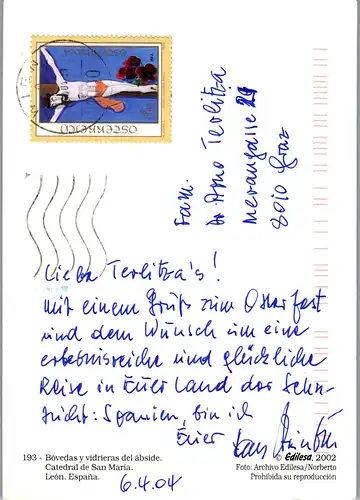 ÖSTERREICH
Fam.
Dr Arno Terlitza
Merangasse
8010 Graz
Liebe Terlitza's!
Mit einem Gruß zum Osterfest
und dem Wunsch um eine
erlebnisreiche und glückliche
Reise in Euer Land der Sehn-
sucht: Spanien, bin ich
Euer
6.4.04
193 - Bóvedas y vidrieras del ábside.
Catedral de San María.
León. España.
© Edilesa, 2002
Foto: Archivo Edilesa/Norberto
Prohibida su reproducción